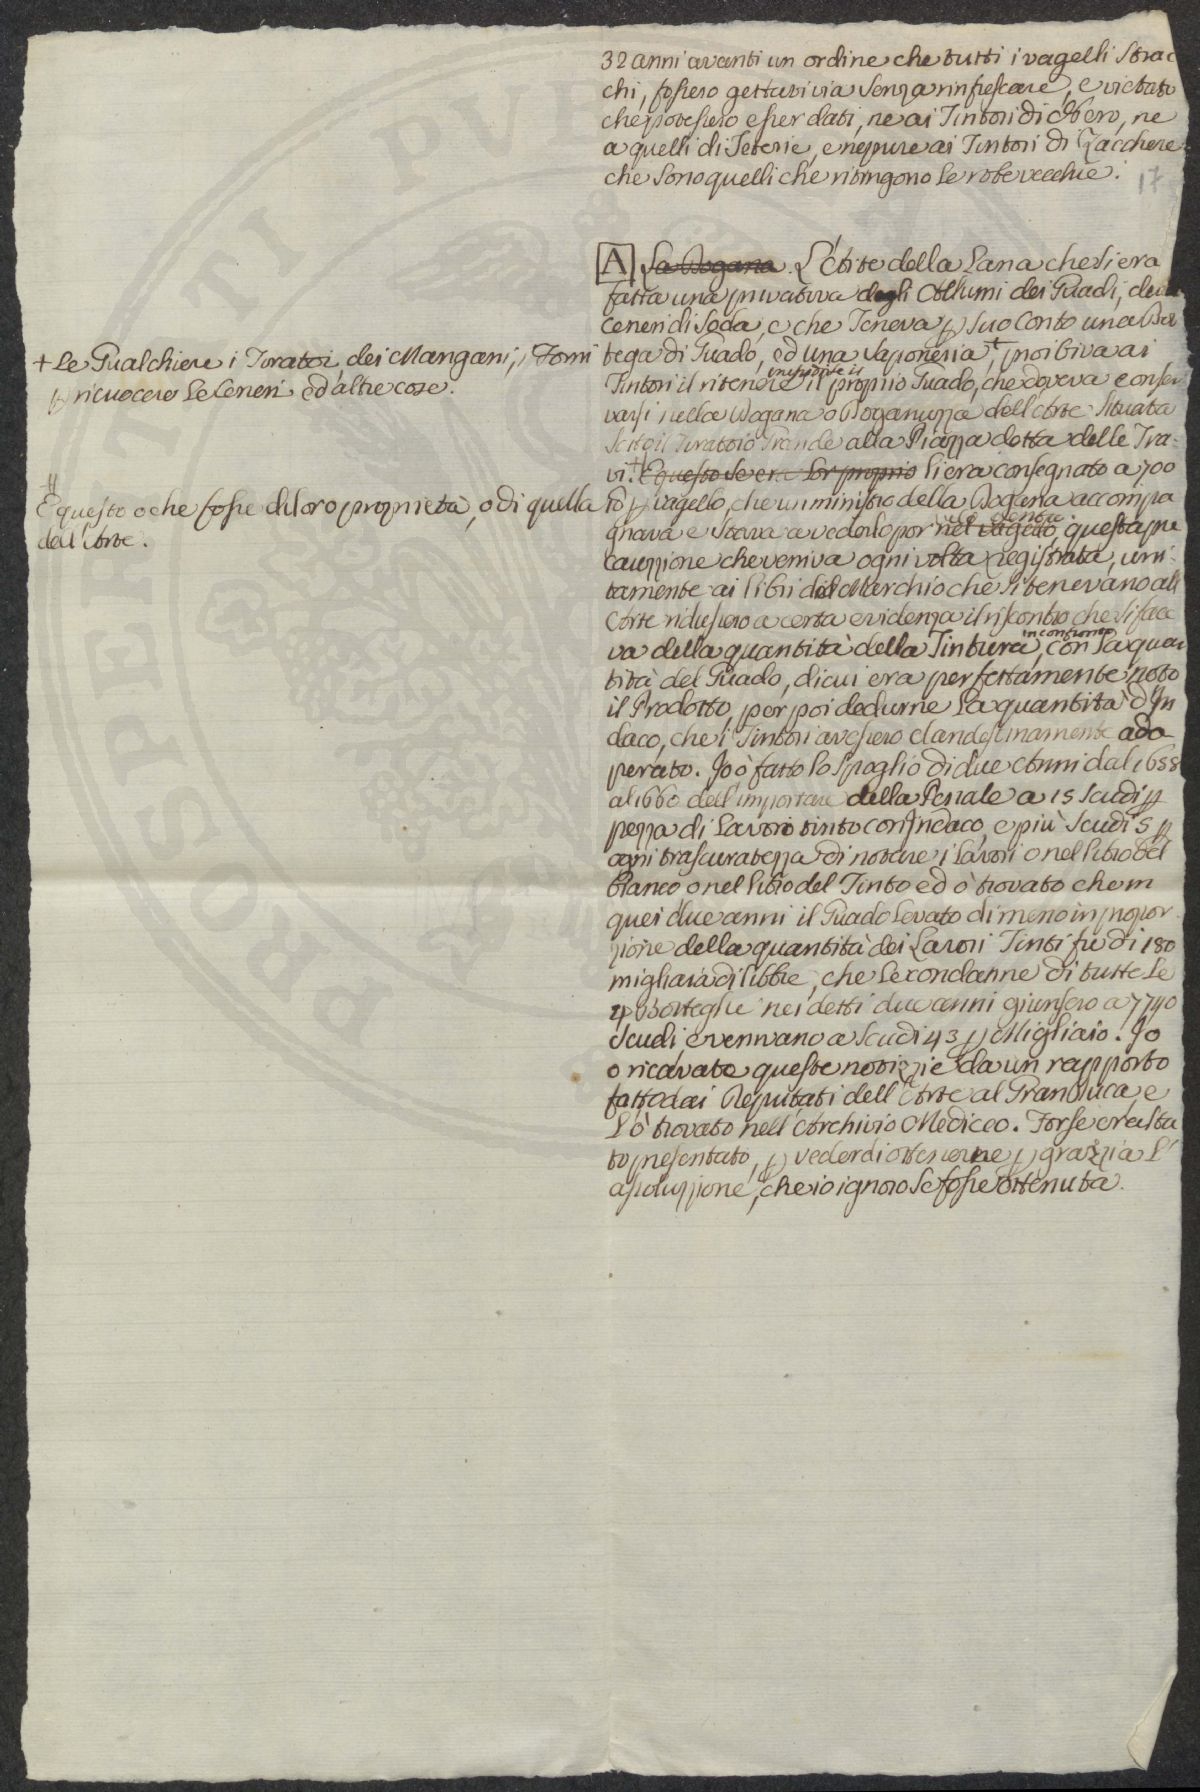 32 anni avanti un ordine che tutti i vagelli strac
chi, fossero gettati via senza rinfrescare, e vietato
che potessero esser dati, ne ai Tintori di Obero, ne
a quelli di Seterie, e neppure ai Tintori di Zacchere
che sono quelli che ritingono le robe vecchie.
17
A La Dogana. L'Arte della Lana che si era
fatta una privativa degli Allumi dei Guadi, delle
ceneri di Soda, e che Teneva p suo conto una Bot
+ Le Gualchiere i Toratoi, dei Mangani, i Forni
tega di Guado, ed una Saponeria +, proibiva ai
p ricuocere le Ceneri ed altre cose.
Tintori il ritenere il proprio Guado, che doveva conser
varsi nella Dogana o Doganuzza dell'Arte situata
sotto il Tiratoio Grande alla Piazza detta delle Tra-
vi. E questo se era lor proprio li era consegnato a 700
E questo o che fosse di loro proprietà, o di quella
dell'Arte.
to p vagello, che un ministro della Dogana accompa
gnava e stava a vederlo por nel vagello, questa pre
cauzzione che veniva ogni volta registrata, uni-
tamente ai libri del Marchio che si tenevano all
Arte ridussero a certa evidenza il riscontro che si face
va della quantità della Tintura, in confronto con la quan
tità del Guado, di cui era perfettamente noto
il Prodotto, per poi dedurne la quantità d'In
daco, che i Tintori avessero clandestinamente ado
perato. Io ò fatto lo spoglio di due Anni dal 1658
al 1660 dell'importare della Penale a 15 scudi p
pezza di Lavoro tinto con Indaco, e più scudi 5 p
ogni trascuratezza di notare i Lavori o nel libro del
bianco o nel libro del Tinto ed ò trovato che in
quei due anni il Guado levato di meno in propor
zione della quantità dei Lavori Tinti fu di 180
migliaia di libbre, che le condanne di tutte le
47 Botteghe nei detti due anni giunsero a 7740
scudi e venivano a scudi 43 p Migliaio. Io
ò ricavato queste notizie da un rapporto
fatto dai Deputati dell'Arte al Granduca, e
l'ò trovato nell'Archivio Mediceo. Forse era sta
to presentato, p veder di ottenerne p grazia l'
assoluzzione, che io ignoro se fosse ottenuta.